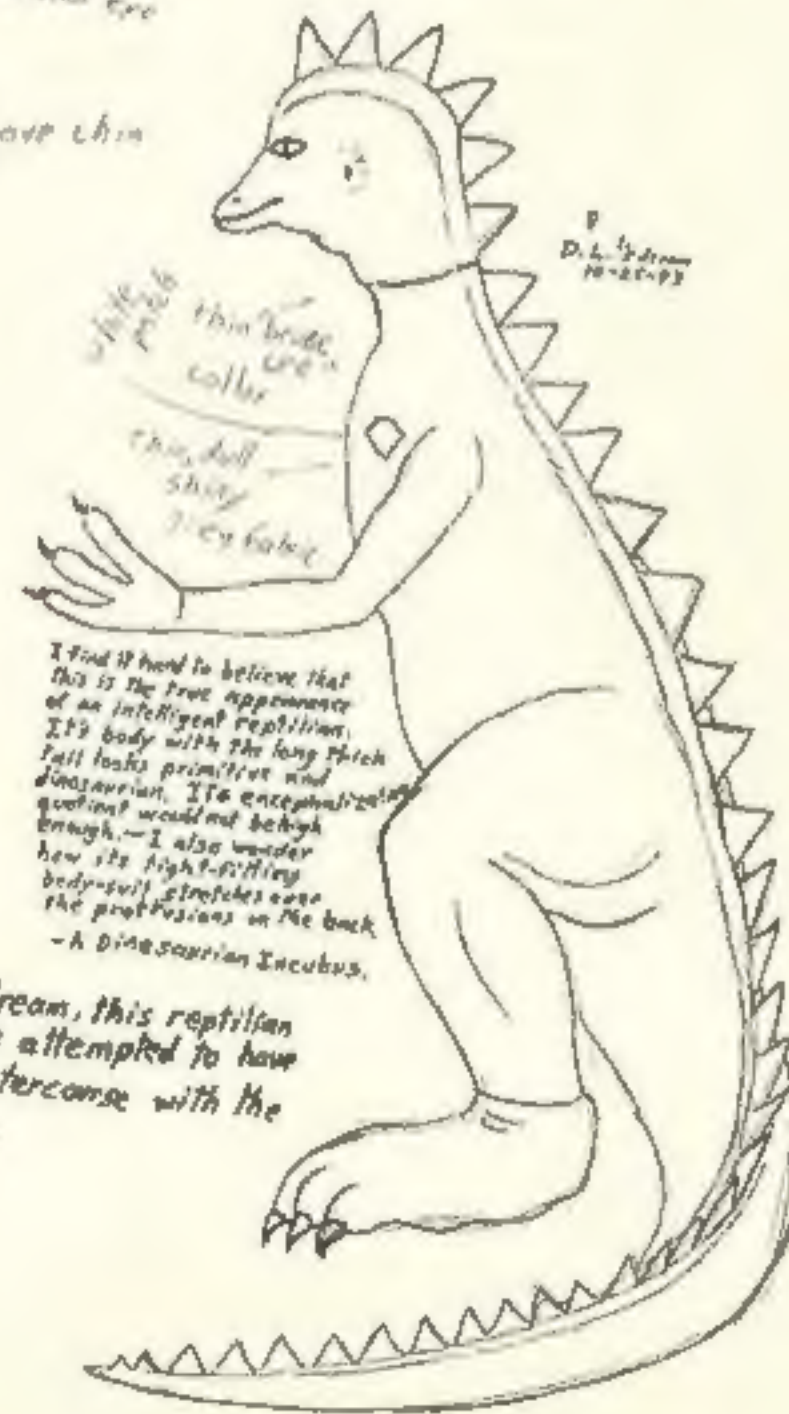 are
ove chin
D. L.
white
patch
thin "bruise
collar
thin, dull
shiny
grey fabric
I find it hard to believe that
this is the true appearance
of an intelligent reptilian.
It's body with the long thick
tail looks primitive and
dinosaurian. Its encephalization
quotient would not be high
enough. — I also wonder
how its tight-fitting
body-suit stretches over
the protrusions on the back
- A Dinosaurian Incubus.
ream, this reptilian
attempted to have
tercourse with the